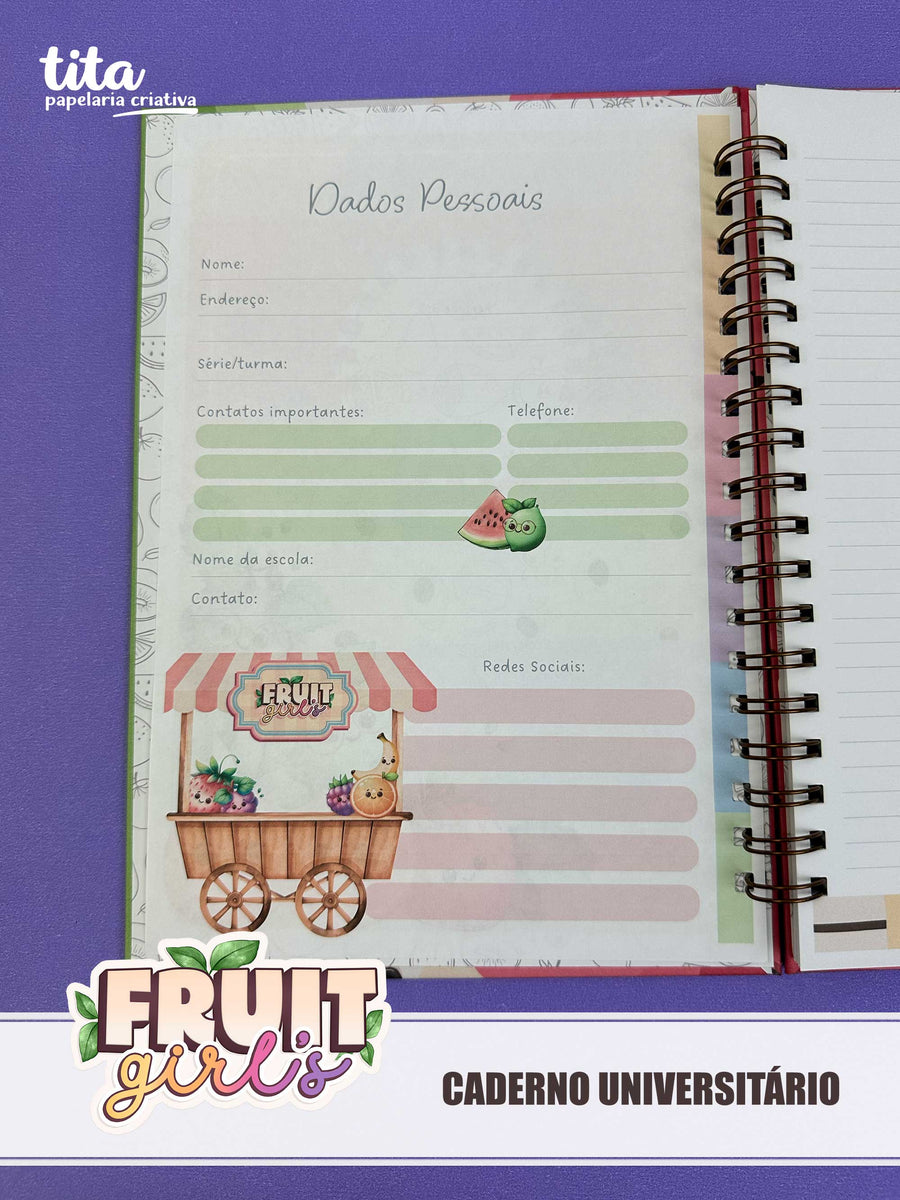 tita
papelaria criativa
Dados Pessoais
Nome:
Endereço:
Série/turma:
Contatos importantes: Telefone:
Nome da escola:
Contato:
Redes Sociais:
FRUIT
girl's
FRUIT
girl's
CADERNO UNIVERSITÁRIO